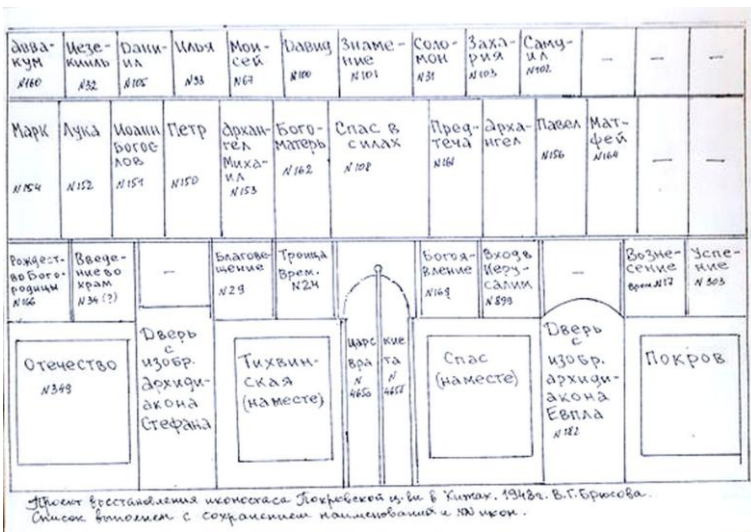 Авва-
кум
N160
Иезе-
кииль
N32
Дани-
ил
N105
Илья
N33
Мои-
сей
N67
Давид
N100
Знаме-
ние
N101
Соло-
мон
N31
Заха-
рия
N103
Саму-
ил
N102
—
—
—
Марк
N154
Лука
N152
Иоанн
Богос-
лов
N151
Петр
N150
Архан-
гел
Миха-
ил
N153
Бого-
матерь
N162
Спас в
силах
N108
Пред-
теча
N161
Арха-
нгел
Павел
N156
Мат-
фей
N164
—
—
Рождест-
во Бого-
родицы
N166
Введе-
ние во
храм
N34 (?)
—
Благове-
щение
N29
Троица
Врем.
N24
Богоя-
вление
N169
Вход в
Иеру-
салим
N899
—
Возне-
сение
Врем N17
Успе-
ние
N303
Отечество
N349
Дверь
с
изобр.
архиди-
акона
Стефана
Тихвин-
ская
(на месте)
царс
вра
N
4656
кие
та
N
4658
Спас
(на месте)
Дверь
с
изобр.
архиди-
акона
Евпла
N182
Покров
Проект восстановления иконостаса Покровской ц-ви в Кижах. 1948г. В.Г. Брюсова.
Список выполнен с сохранением наименований и NN икон.